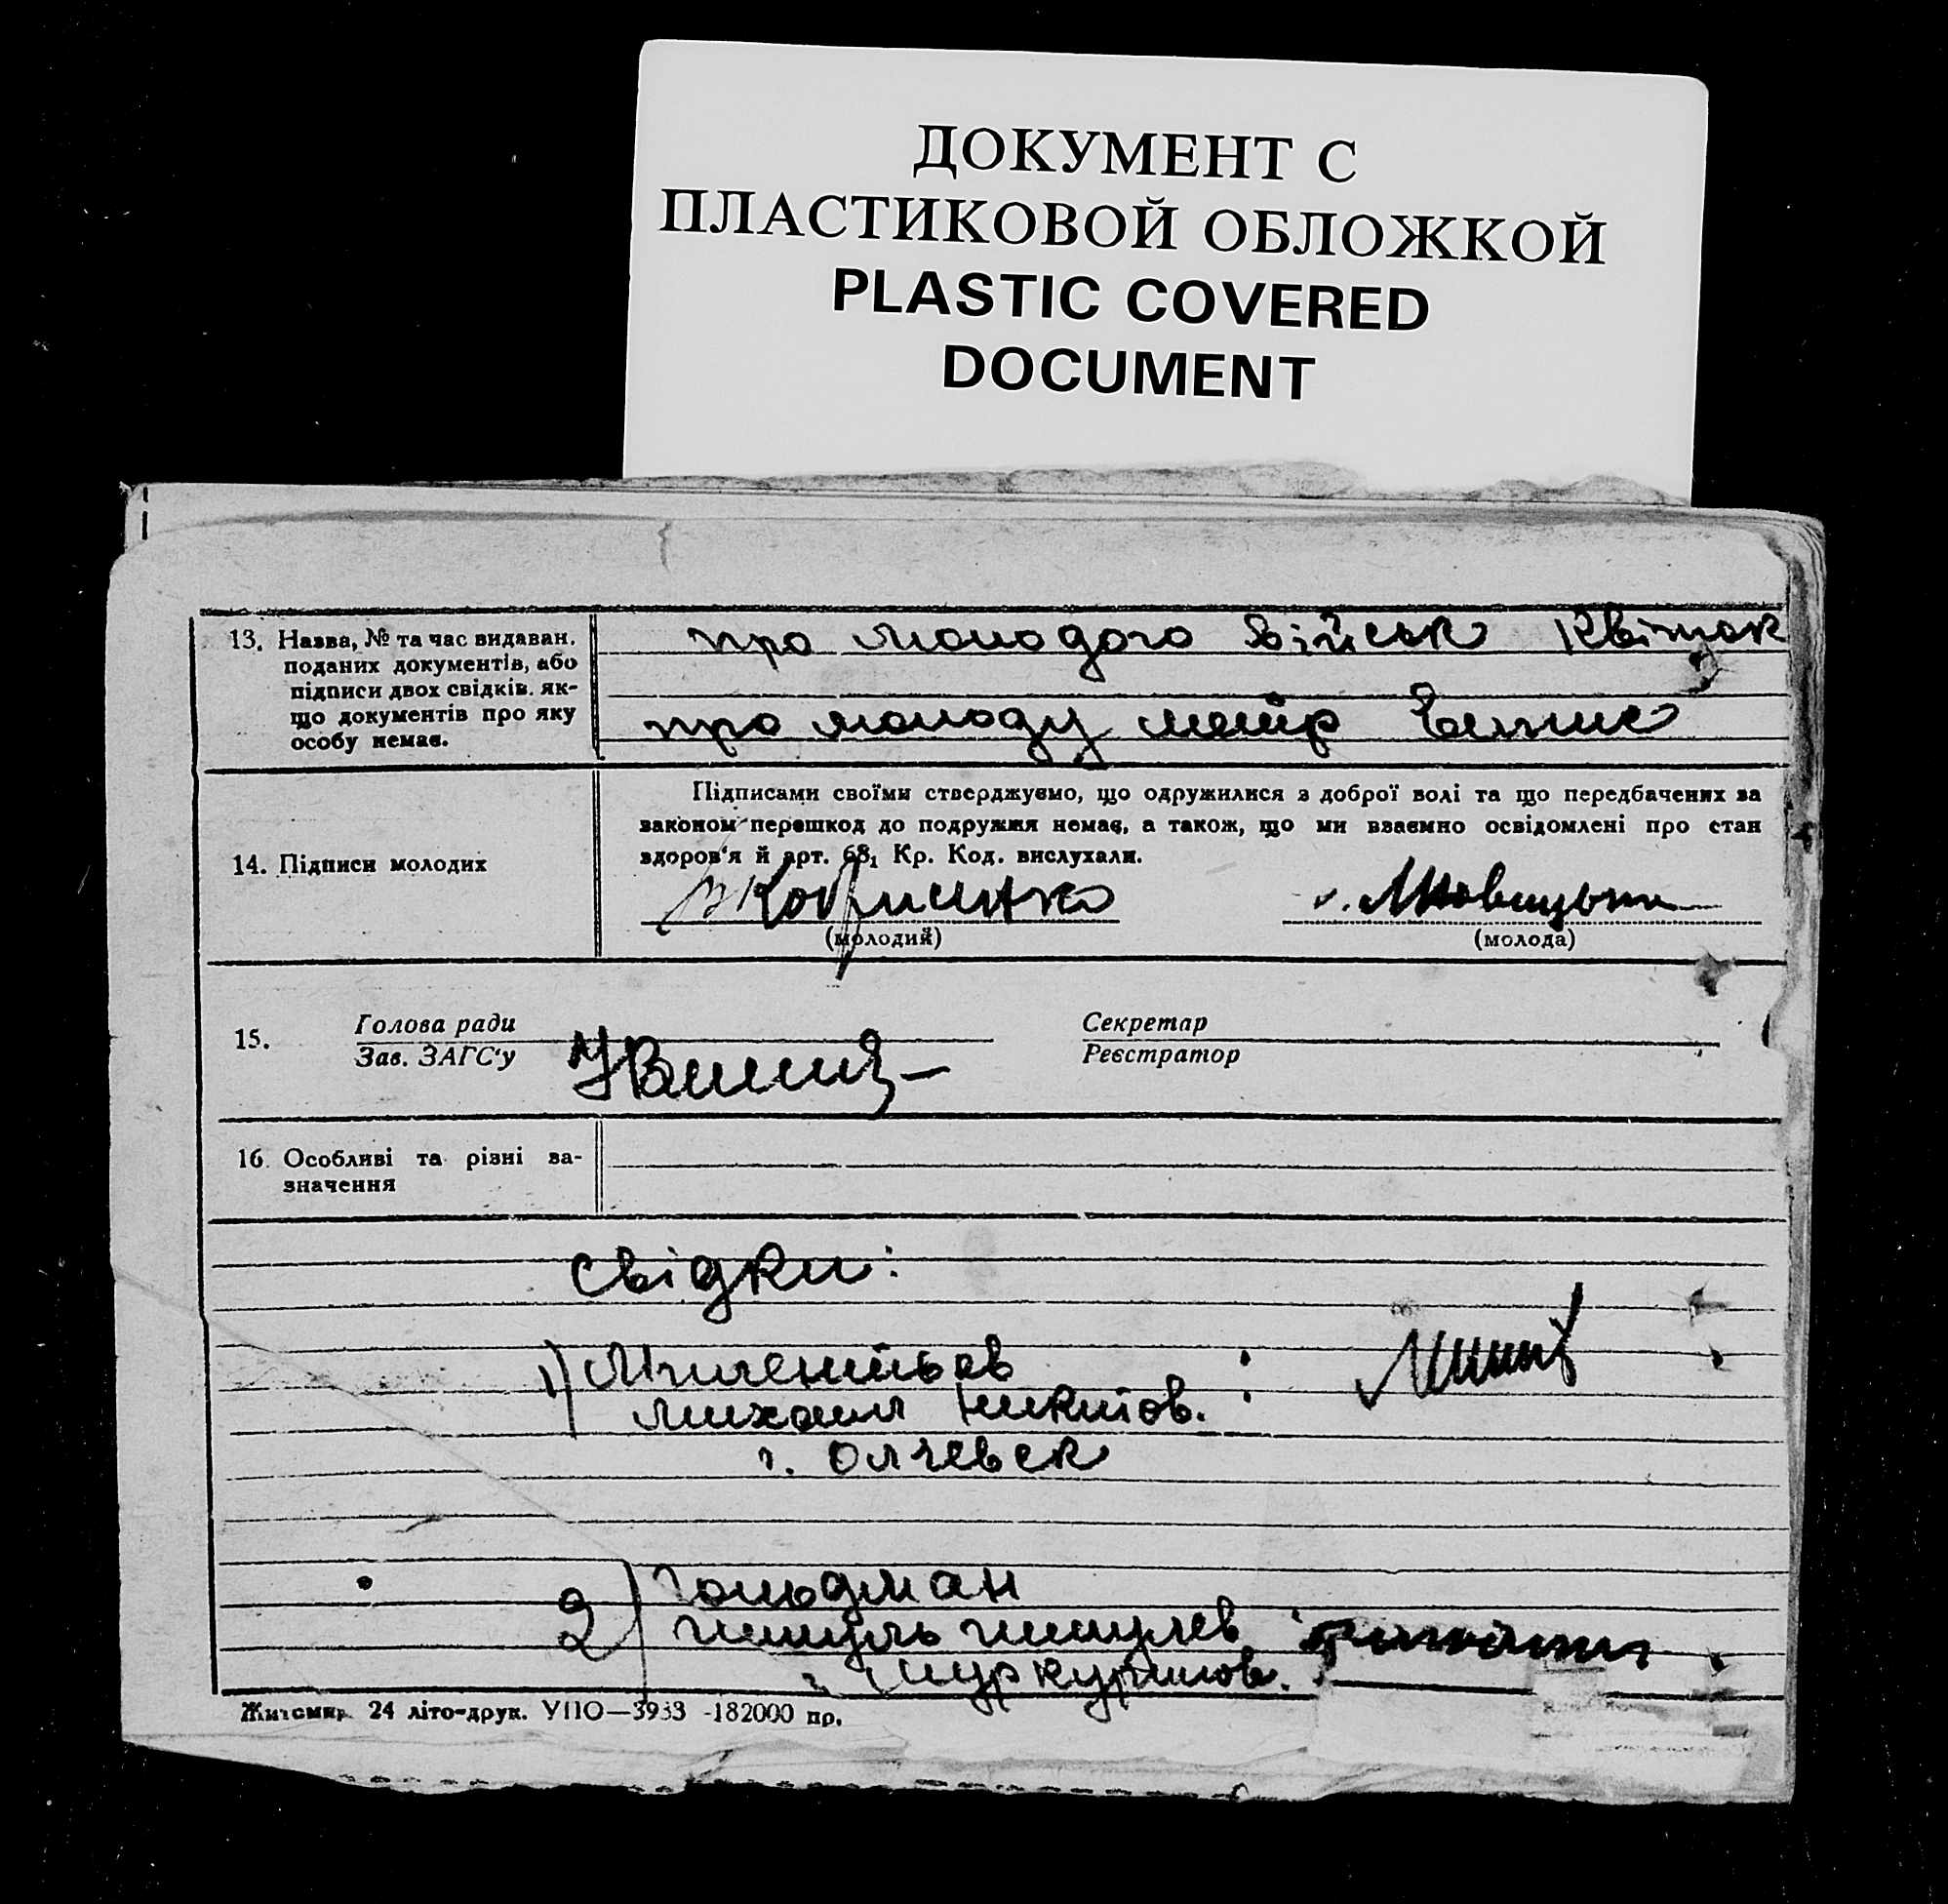 ДОКУМЕНТ С
ПЛАСТИКОВОЙ ОБЛОЖКОЙ
PLASTIC COVERED
DOCUMENT
13. Назва, № та час видаван.
поданих документів, або
підписи двох свідків. як-
що документів про яку
особу немає.
про молодого Військ Квіток
про молоду
14. Підписи молодих
Підписами своїми стверджуємо, що одружилися з доброї волі та що передбачених за
законом перешкод до подружжя немає, а також, що ми взаємно освідомлені про стан
здоров'я й арт. 68₁ Кр. Код. вислухали.
(молодий)
(молода)
15.
Голова ради
Зав. ЗАГС'у
Секретар
Реєстратор
16. Особливі та різні за-
значення
свідки:
1)
Михаил Никитов.
г. Олевск
2) Гольдман
Житомир. 24 літо-друк. УПО—3933 -182000 пр.